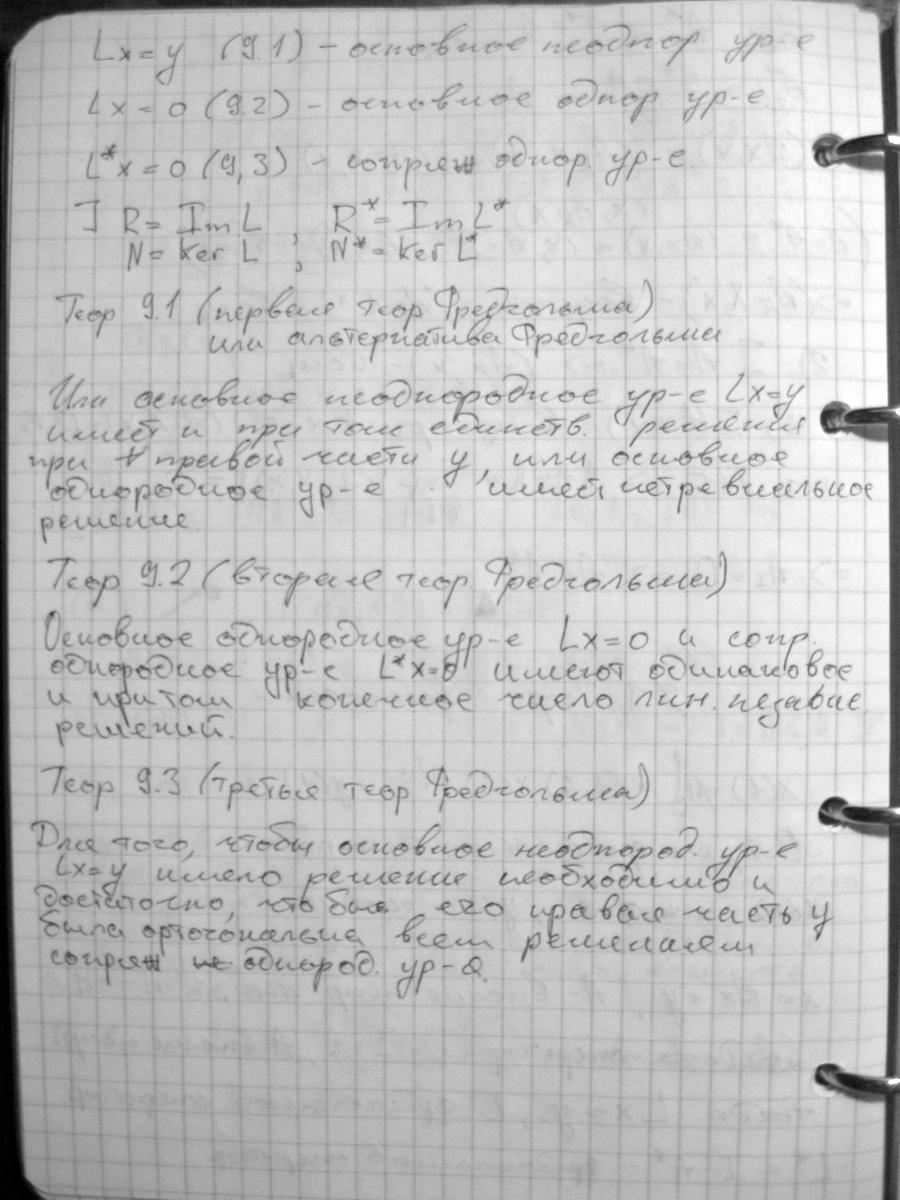 Lx=y (9.1) – основное неоднор ур-е
Lx=0 (9.2) – основное однор ур-е
L*x=0 (9,3) – сопряж однор. ур-е
] R = Im L , R* = Im L*
N = ker L , N* = ker L*
Теор 9.1 (первая теор Фредгольма)
или альтернатива Фредгольма
Или основное неоднородное ур-е Lx=y
имеет и при том единств. решения
при ∀ правой части y, или основное
однородное ур-е имеет нетревиальное
решение.
Теор 9.2 (вторая теор. Фредгольма)
Основное однородное ур-е Lx=0 и сопр.
однородное ур-е L*x=0 имеют одинаковое
и притом конечное число лин. независ.
решений.
Теор 9.3 (третья теор Фредгольма)
Для того, чтобы основное неоднород. ур-е
Lx=y имело решение необходимо и
достаточно, что бы его правая часть y
была ортогональна всем решениям
сопряж однород. ур-я.